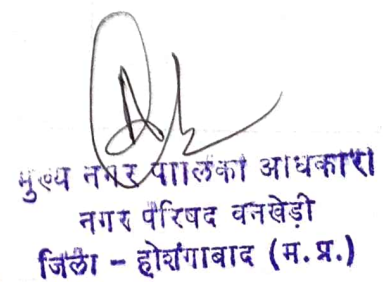 मुख्य नगर पालिका अधिकारी
नगर परिषद वनखेड़ी
जिला - होशंगाबाद (म.प्र.)